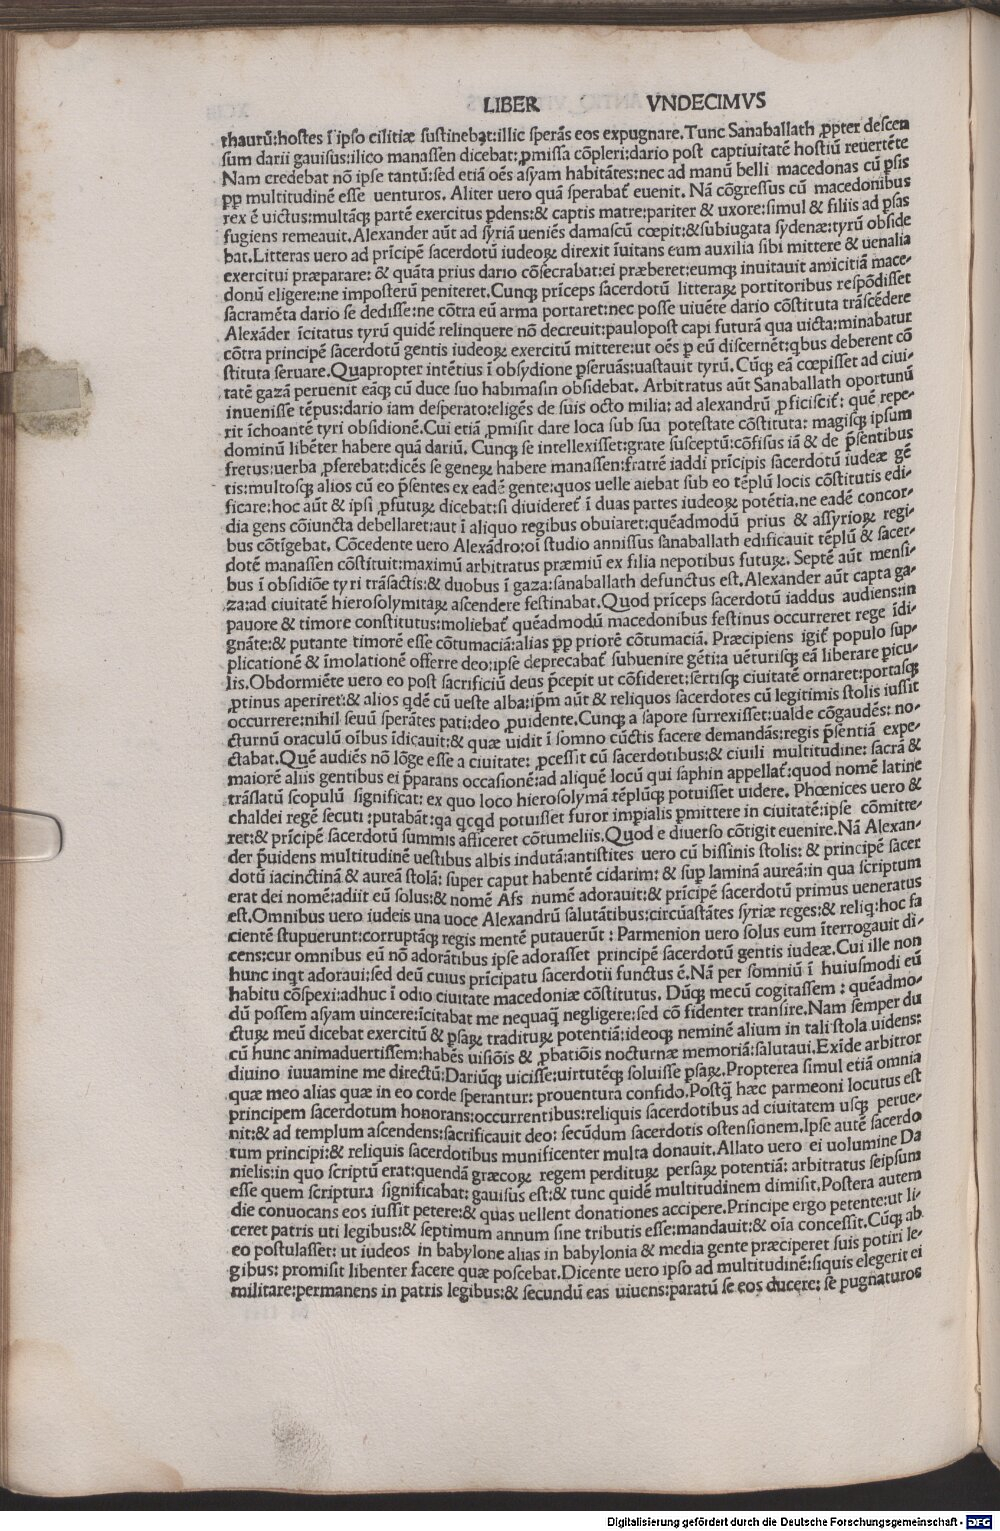 LIBER VNDECIMVS
thaurū:hostes ī ipso cilitiæ sustinebat:illic sperās eos expugnare.Tunc Sanaballath ꝓpter descen
sum darii gauisus:ilico manassen dicebat:ꝓmissa cōpleri:dario post captiuitatē hostiū reuertēte
Nam credebat nō ipse tantū:sed etiā oēs asyam habitātes:nec ad manū belli macedonas cū ꝑsis
ꝓp multitudinē esse uenturos. Aliter uero quā sperabat̄ euenit. Nā cōgressus cū macedonibus
rex ē uictus:multāqꝫ partē exercitus ꝑdens:& captis matre:pariter & uxore:simul & filiis ad ꝑsas
fugiens remeauit.Alexander aūt ad syriā ueniēs damascū cœpit:& subiugata sydenæ:tyrū obside
bat.Litteras uero ad prīcipē sacerdotū iudeoꝝ direxit īuitans eum auxilia sibi mittere & uenalia
exercitui præparare: & quāta prius dario cōsecrabat:ei præberet:eumqꝫ inuitauit amicitiā mace-
donū eligere:ne imposterū peniteret.Cunqꝫ prīceps sacerdotū litteraꝝ portitoribus respōdisset
sacramēta dario se dedisse:ne cōtra eū arma portaret:nec posse uiuēte dario cōstituta trāscēdere
Alexāder īcitatus tyrū quidē relinquere nō decreuit:paulopost capi futurā qua uicta:minabatur
cōtra principē sacerdotū gentis iudeoꝝ exercitū mittere:ut oēs ꝑ eū discernēt:qbus deberent cō
stituta seruare.Quapropter intētius ī obsydione ꝑseruās:uastauit tyrū.Cūqꝫ eā cœpisset ad ciui-
tatē gazā peruenit eāqꝫ cū duce suo habimasin obsidebat. Arbitratus aūt Sanaballath oportunū
inuenisse tēpus:dario iam desperato:eligēs de suis octo milia: ad alexandrū ꝓficiscit̄: quē repe-
rit īchoantē tyri obsidionē.Cui etiā ꝓmisit dare loca sub sua potestate cōstituta: magisqꝫ ipsum
dominū libēter habere quā dariū. Cunqꝫ se intellexisset:grate susceptū:cōfisus iā & de p̄sentibus
fretus:uerba ꝓferebat:dicēs se geneꝝ habere manassen:fratrē iaddi prīcipis sacerdotū iudeæ gē
tis:multosqꝫ alios cū eo p̄sentes ex eadē gente:quos uelle aiebat sub eo tēplū locis cōstitutis edi-
ficare:hoc aūt & ipsi ꝓfutuꝝ dicebat:si diuideret̄ ī duas partes iudeoꝝ potētia.ne eadē concor-
dia gens cōiuncta debellaret:aut ī aliquo regibus obuiaret:quēadmodū prius & assyrioꝝ regi-
bus cōtīgebat. Cōcedente uero Alexādro:oī studio annissus sanaballath edificauit tēplū & sacer-
dotē manassen cōstituit:maximū arbitratus præmiū ex filia nepotibus futuꝝ. Septē aūt mensi-
bus ī obsidiōe tyri trāsactis:& duobus ī gaza:sanaballath defunctus est.Alexander aūt capta ga-
za:ad ciuitatē hierosolymitaꝝ ascendere festinabat.Quod prīceps sacerdotū iaddus audiens:in
pauore & timore constitutus:moliebat̄ quēadmodū macedonibus festinus occurreret rege īdi-
gnāte:& putante timorē esse cōtumaciā:alias ꝓp priorē cōtumaciā. Præcipiens igit̄ populo sup-
plicationē & īmolationē offerre deo:ipse deprecabat̄ subuenire gēti:a uēturisqꝫ eā liberare picu-
lis.Obdormiēte uero eo post sacrificiū deus p̄cepit ut cōfideret:sertisqꝫ ciuitatē ornaret:portasqꝫ
ꝓtinus aperiret:& alios qdē cū ueste alba:ip̄m aūt & reliquos sacerdotes cū legitimis stolis iussit
occurrere:nihil seuū sperātes pati:deo ꝓuidente.Cunqꝫ a sapore surrexisset:ualde cōgaudēs: no-
cturnū oraculū oībus īdicauit:& quæ uidit ī somno cūctis facere demandās:regis p̄sentiā expe-
ctabat.Quē audiēs nō lōge esse a ciuitate: ꝓcessit cū sacerdotibus:& ciuili multitudine: sacrā &
maiorē aliis gentibus ei p̄parans occasionē:ad aliquē locū qui saphin appellat̄:quod nomē latine
trāslatū scopulū significat: ex quo loco hierosolymā tēplūqꝫ potuisset uidere. Phœnices uero &
chaldei regē secuti :putabāt:qa qcqd potuisset furor imꝑialis ꝑmittere in ciuitatē:ipse cōmitte-
ret:& prīcipē sacerdotū summis afficeret cōtumeliis.Quod e diuerso cōtigit euenire.Nā Alexan-
der p̄uidens multitudinē uestibus albis indutā:antistites uero cū bissinis stolis: & principē sacer
dotū iacinctinā & aureā stolā: super caput habentē cidarim: & suꝑ laminā aureā:in qua scriptum
erat dei nomē:adiit eū solus:& nomē Afs numē adorauit:& prīcipē sacerdotū primus ueneratus
est.Omnibus uero iudeis una uoce Alexandrū salutātibus:circūastātes syriæ reges:& reliq:hoc fa
cientē stupuerunt:corruptāqꝫ regis mentē putauerūt : Parmenion uero solus eum īterrogauit di-
cens:cur omnibus eū nō adorātibus ipse adorasset principē sacerdotū gentis iudeæ.Cui ille non
hunc inqt adoraui:sed deū cuius prīcipatu sacerdotii functus ē.Nā per somniū ī huiusmodi eū
habitu cōspexi:adhuc ī odio ciuitate macedoniæ cōstitutus. Dūqꝫ mecū cogitassem : quēadmo-
dū possem asyam uincere:īcitabat me nequaq̄ negligere:sed cō fidenter transire.Nam semper du
ctuꝝ meū dicebat exercitū & ꝑsaꝝ tradituꝝ potentiā:ideoqꝫ neminē alium in tali stola uidens:
cū hunc animaduertissem:habēs uisiōis & ꝓbatiōis nocturnæ memoriā:salutaui.Exīde arbitror
diuino iuuamine me directū:Dariūqꝫ uicisse:uirtutēqꝫ soluisse ꝑsaꝝ.Propterea simul etiā omnia
quæ meo alias quæ in eo corde sperantur: prouentura confido.Postq̄ hæc parmeoni locutus est
principem sacerdotum honorans:occurrentibus:reliquis sacerdotibus ad ciuitatem usqꝫ perue-
nit:& ad templum ascendens:sacrificauit deo: secūdum sacerdotis ostensionem.Ipse autē sacerdo
tum principi:& reliquis sacerdotibus munificenter multa donauit.Allato uero ei uolumine Da
nielis:in quo scriptū erat:quendā græcoꝝ regem perdituꝝ persaꝝ potentiā: arbitratus seipsum
esse quem scriptura significabat: gauisus est:& tunc quidē multitudinem dimisit.Postera autem
die conuocans eos iussit petere:& quas uellent donationes accipere.Principe ergo petente:ut li-
ceret patris uti legibus:& septimum annum sine tributis esse:mandauit:& oīa concessit.Cūqꝫ ab
eo postulasset: ut iudeos in babylone alias in babylonia & media gente præciperet suis potiri le-
gibus: promisit libenter facere quæ poscebat.Dicente uero ipso ad multitudinē:siquis elegerit ei
militare:permanens in patris legibus:& secundū eas uiuens:paratū se eos ducere: se pugnaturos
Digitalisierung gefördert durch die Deutsche Forschungsgemeinschaft - DFG